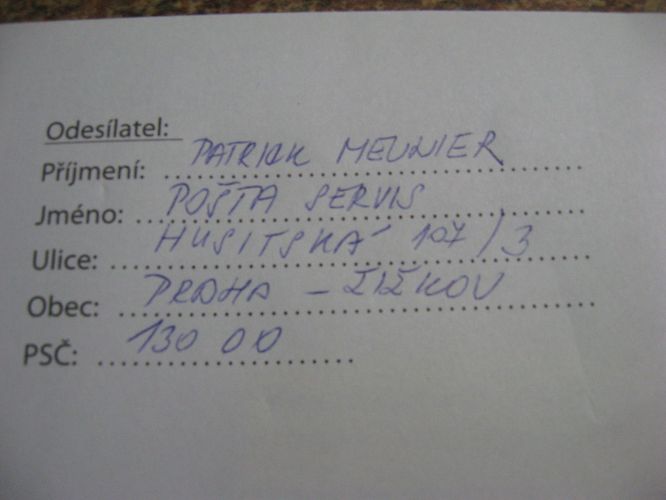 Odesílatel:
Příjmení: PATRICK MEUNIER
Jméno: POŠTA SERVIS
Ulice: HUSITSKÁ 107/3
Obec: PRAHA - ŽIŽKOV
PSČ: 130 00